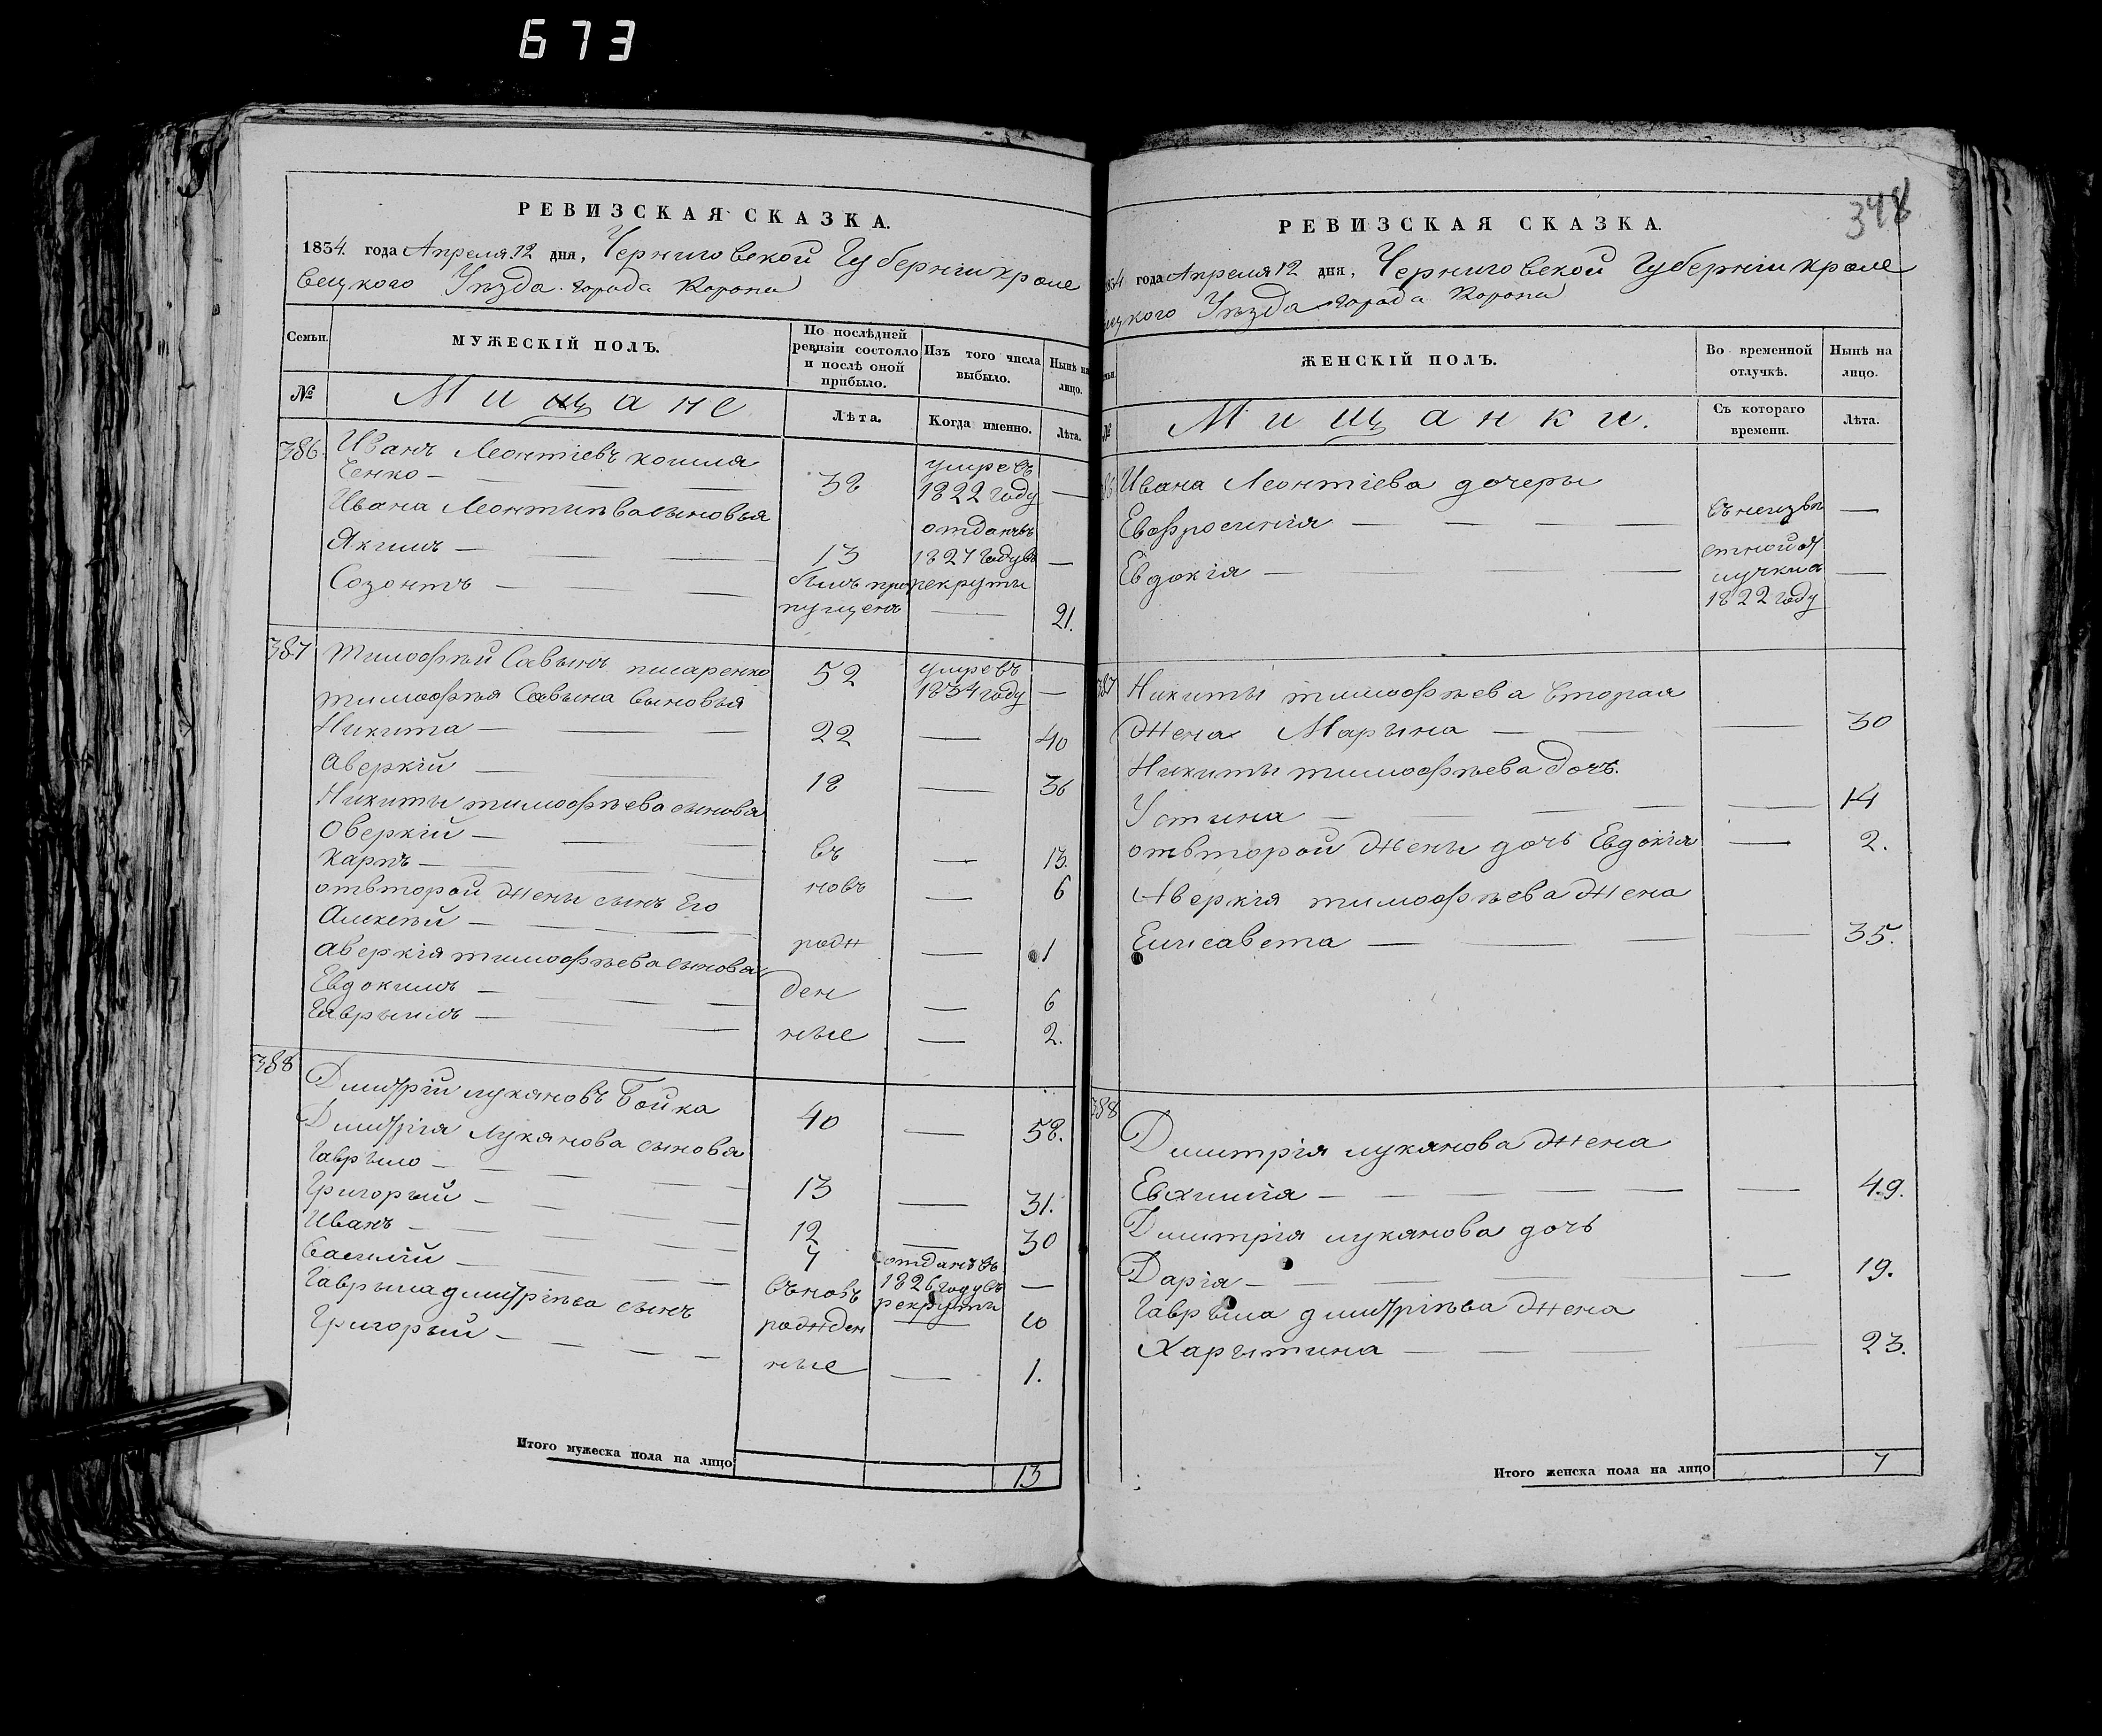 673
РЕВИЗСКАЯ СКАЗКА.
1834. года Апреля 12 дня, Черниговской Губерніи кроле
вецкого Уѣзда города Коропа
Семьи.
МУЖЕСКІЙ ПОЛЪ.
По послѣдней ревизіи состояло и послѣ оной прибыло.
Изъ того числа выбыло.
Нынѣ на лицо.
№
Мищане
Лѣта.
Когда именно.
Лѣта.
386. Иванъ Леонтіевъ кошля
ченко — 38 умре въ 1822 году —
Ивана Леонтиева сыновья
Якимъ — 13 отданъ въ 1827 году въ рекруты —
Созонтъ — былъ пропущенъ — 21.
387 Тимофѣй Савынъ писаренко 52 умре въ 1834 году —
тимофѣя Савына сыновья
Никита — 22 — 40
Аверкій — 18 — 36
Никиты тимофѣева сыновя
Оверкій — въ — 13.
Карпъ — новъ — 6
отвторой жены сынъ Его
Алексѣй — рож — 1
Аверкія тимофѣева сыновя
Евдокимъ — ден — 6
Гаврыилъ — ные — 2.
388 Дмитрій лукяновъ Бойка 40 — 58.
Дмитрія Лукянова сыновя
Гаврыло — 13 — 31.
Григорый — 12 — 30
Иванъ — 7 отданъ въ 1826 году въ рекруты —
Василій — въновь — 10
Гаврыла дмитріѣва сынъ
Григорый — рожден ные — 1.
Итого мужеска пола на лицо 13
348
РЕВИЗСКАЯ СКАЗКА.
1834 года Апреля 12 дня, Черниговской Губерніи кроле
вецкого Уѣзда города Коропа
ЖЕНСКІЙ ПОЛЪ.
Во временной отлучкѣ.
Нынѣ на лицо.
№
Мищанки.
Съ котораго времени.
Лѣта.
386 Ивана Леонтіева дочеры
Евфросинія — въ неизвѣ —
Евдокія — стной от лучки с 1822 году —
387 Никиты тимофѣева вторая
жена Марына — — 30
Никиты тимофѣева дочь.
Устина — — 14
отвторой жены дочь Евдокія — 2.
Аверкія тимофѣева жена
Елисавета — — 35.
388 Дмитрія лукянова жена
Евхимія — — 49.
Дмитрія лукянова дочь
Дарія — — 19.
Гаврыла дмитріѣва жена
Харытина — — 23.
Итого женска пола на лицо 7